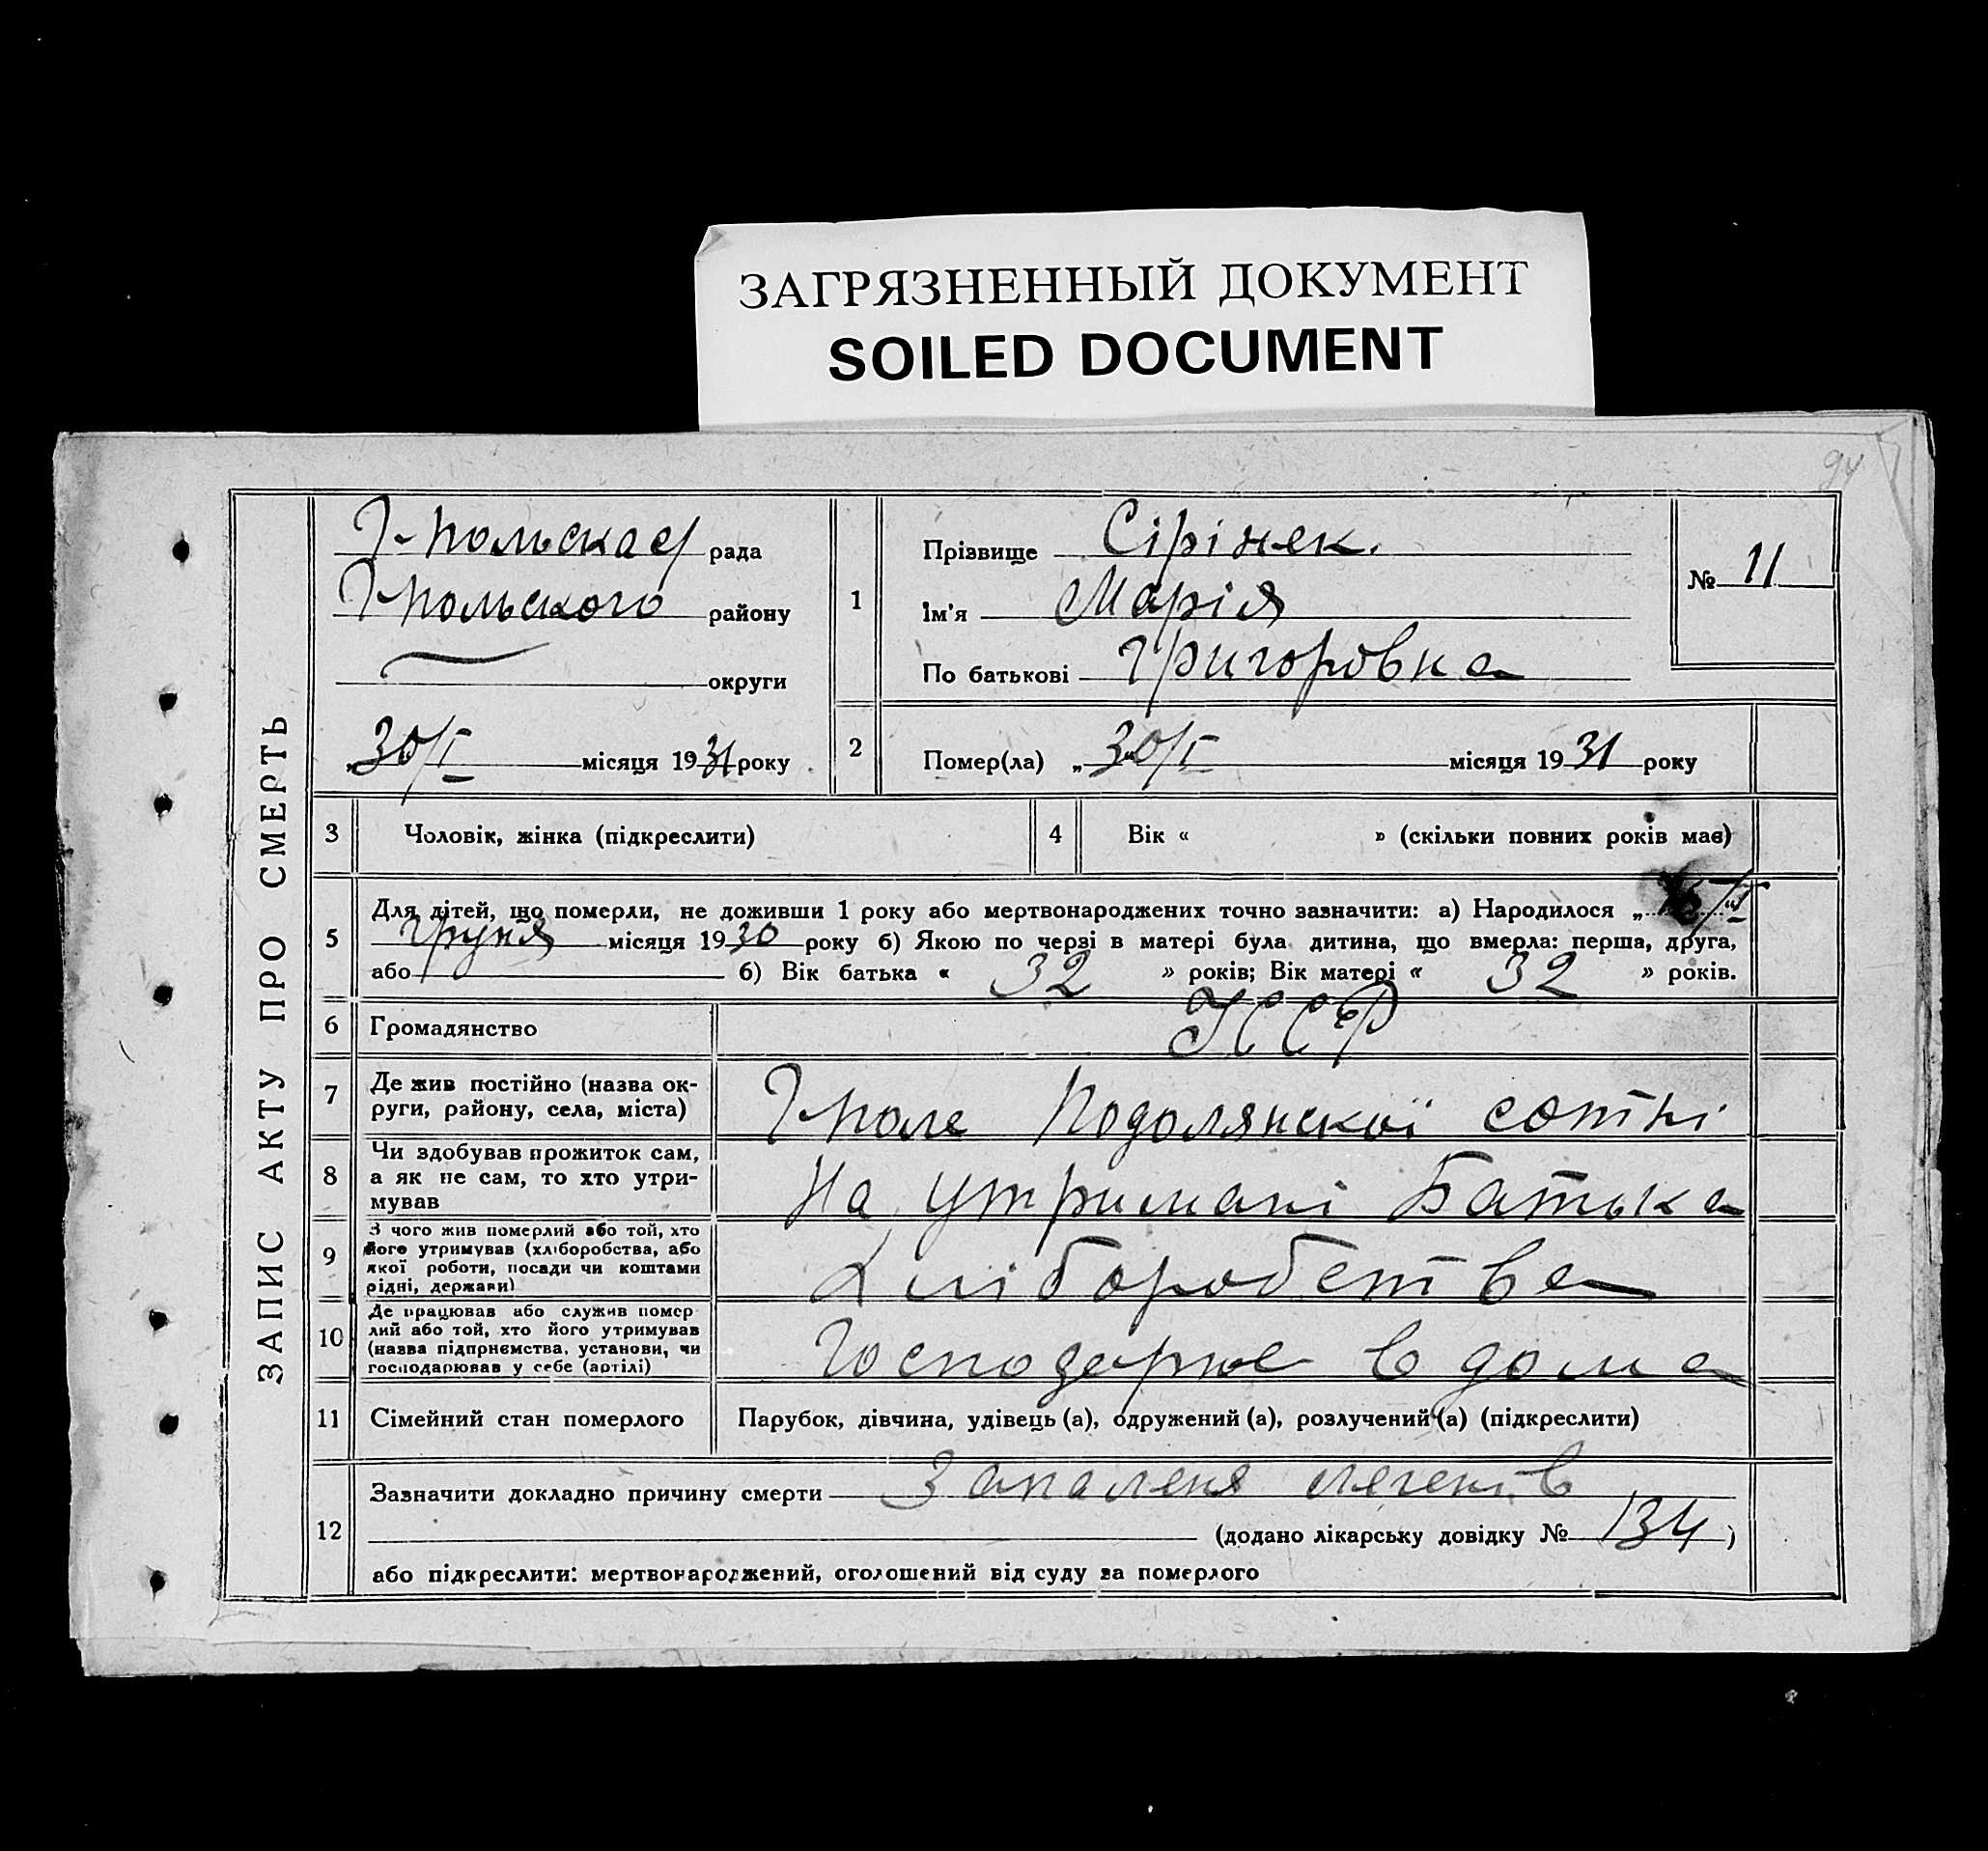 ЗАГРЯЗНЕННЫЙ ДОКУМЕНТ
SOILED DOCUMENT
94
ЗАПИС АКТУ ПРО СМЕРТЬ
рада
района
району
округи
30/I місяця 1931 року
1
Прізвище Сірінек.
Ім'я Марія
По батькові Григоровна
№ 11
2
Помер(ла) „30/I місяця 1931 року
3 Чоловік, жінка (підкреслити)
4 Вік « » (скільки повних років має)
5
Для дітей, що померли, не доживши 1 року або мертвонароджених точно зазначити: а) Народилося „
Грудня місяця 1930 року б) Якою по черзі в матері була дитина, що вмерла: перша, друга,
або б) Вік батька « 32 » років; Вік матері « 32 » років.
6 Громадянство УССР
7 Де жив постійно (назва ок-
руги, району, села, міста)
Подолянскої сотні
8 Чи здобував прожиток сам,
а як не сам, то хто утри-
мував
На утримані Батька
9 З чого жив померлий або той, хто
його утримував (хліборобства, або
якої роботи, посади чи коштами
рідні, держави)
Хліборобства
10 Де працював або служив помер
лий або той, хто його утримував
(назва підприємства, установи, чи
господарював у себе (артілі)
Господарює в дома
11 Сімейний стан померлого Парубок, дівчина, удівець (а), одружений (а), розлучений (а) (підкреслити)
12
Зазначити докладно причину смерти Запаленя легенів
(додано лікарську довідку № 134)
або підкреслити: мертвонароджений, оголошений від суду за померлого